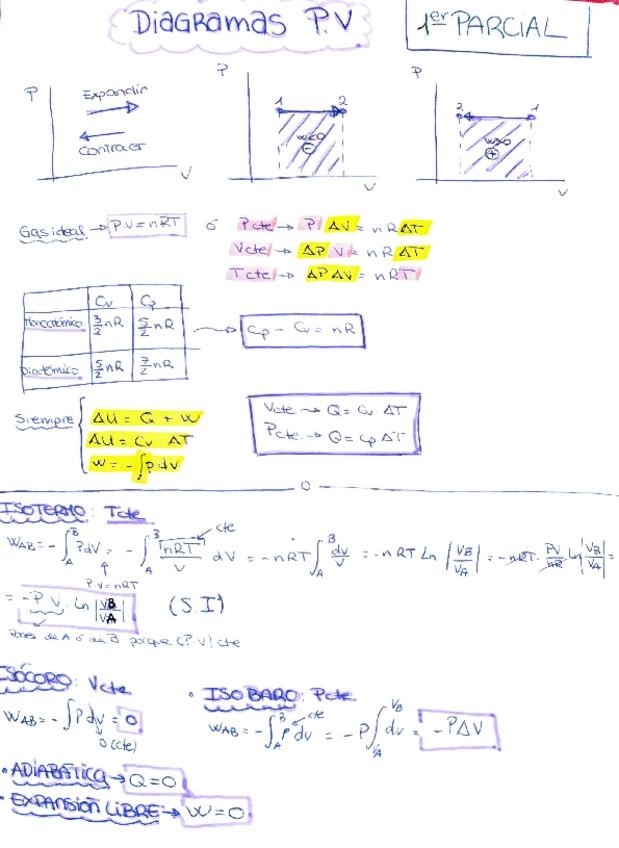 Diagramas P.V
1er PARCIAL
P
Expandir
Contraer
V
P
1 2
W<0
⊖
V
P
2 1
W>0
⊕
V
Gas ideal → P.V = nRT ó Pcte → P ΔV = nRΔT
Vcte → ΔP V = nRΔT
Tcte → ΔPΔV = nRT
Cv Cp
Monoatómico 3/2 nR 5/2 nR → Cp - Cv = nR
Diatómico 5/2 nR 7/2 nR
Siempre
ΔU = Q + W
ΔU = Cv ΔT
W = -∫pdV
Vcte → Q = Cv ΔT
Pcte → Q = Cp ΔT
ISOTERMO: Tcte
cte
WAB = -∫_A^B PdV = -∫_A^B nRT/V dV = -nRT ∫_A^B dV/V = -nRT Ln |VB/VA| = -nRT. PV/nR Ln|VB/VA| =
P.V=nRT
= -P V. Ln |VB/VA| (S.I)
de A ó de B porque (P.V) cte
ISÓCORO: Vcte
WAB = -∫PdV = 0
0 (cte)
• ISOBARO: Pcte
cte
WAB = -∫_A^B P dV = -P∫_VA^VB dV = -PΔV
• ADIABÁTICA → Q=0
• EXPANSIÓN LIBRE → W=0